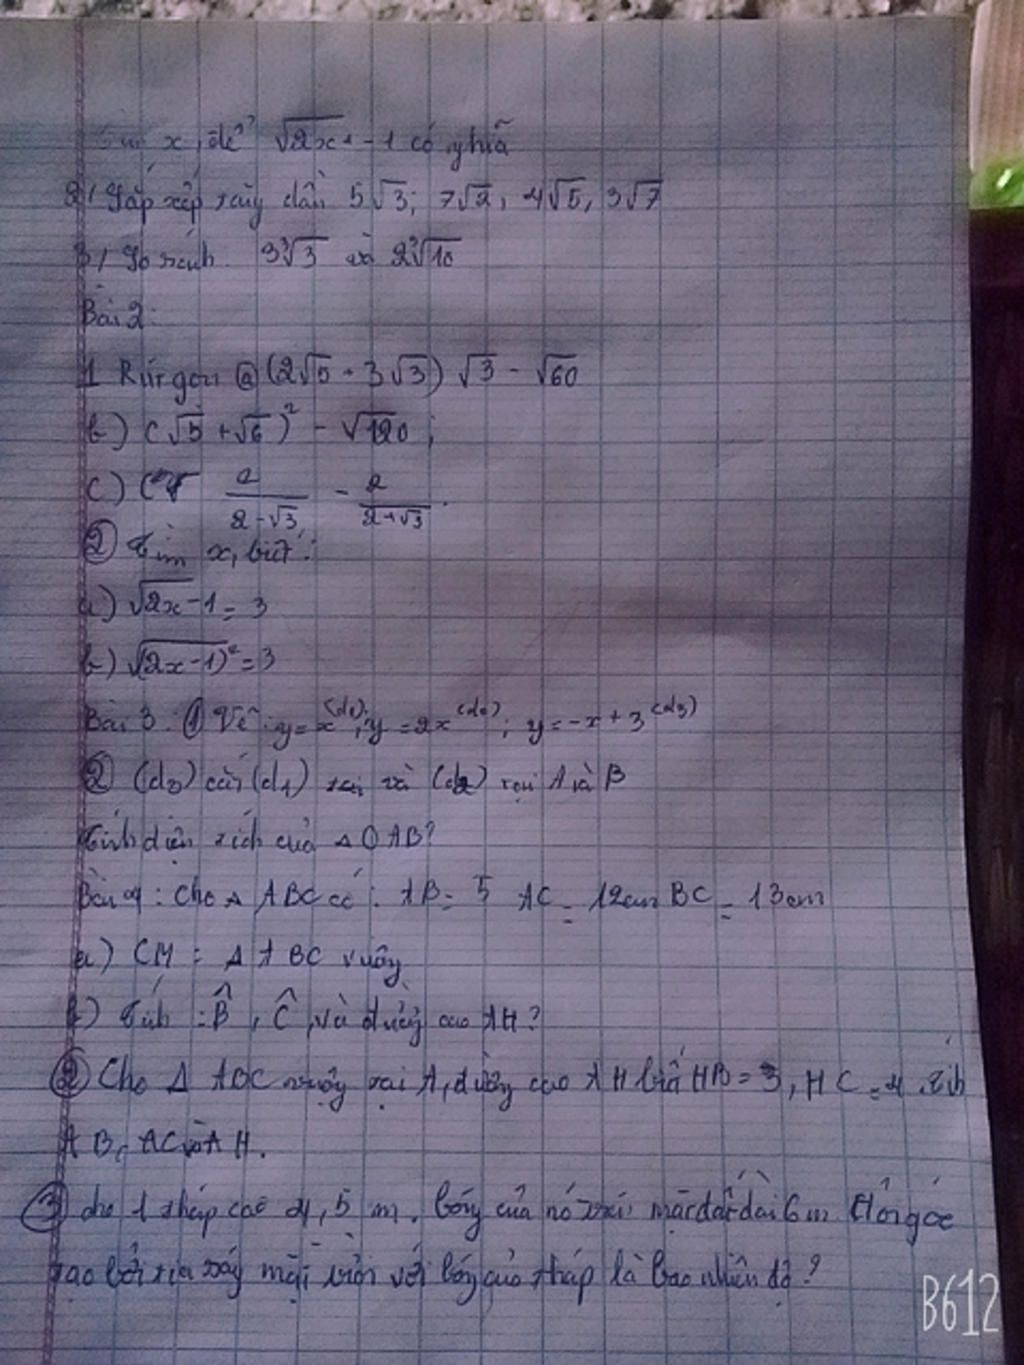 x, để √2x+-1 có nghĩa
2/ Sắp xếp tăng dần 5√3; 7√2, 4√5, 3√7
3/ So sánh 3∛3 và 2∛10
Bài 2:
1 Rút gọn ⓐ (2√5 + 3√3) √3 - √60
b) (√5 + √6)² - √120;
c) 2/(2-√3) - 2/(2+√3).
② Tìm x, biết:
a) √2x-1 = 3
b) √(2x-1)² = 3
Bài 3: ① Vẽ: y = x (d1); y = 2x (d2); y = -x + 3 (d3)
② (d3) cắt (d1) và (d2) tại A và B
Tính diện tích của Δ OAB?
Bài 4: Cho Δ ABC có: AB = 5 AC = 12cm BC = 13cm
a) CM: Δ ABC vuông
b) Tính: B̂, Ĉ, và đường cao AH?
② Cho Δ ABC vuông tại A, đường cao AH biết HB = 3, HC = 4. Tính
AB, AC và AH.
③ cho 1 tháp cao 4,5 m. bóng của nó trên mặt đất dài 6m Hỏi góc
tạo bởi tia sáng mặt trời với bóng của tháp là bao nhiêu độ?
B612